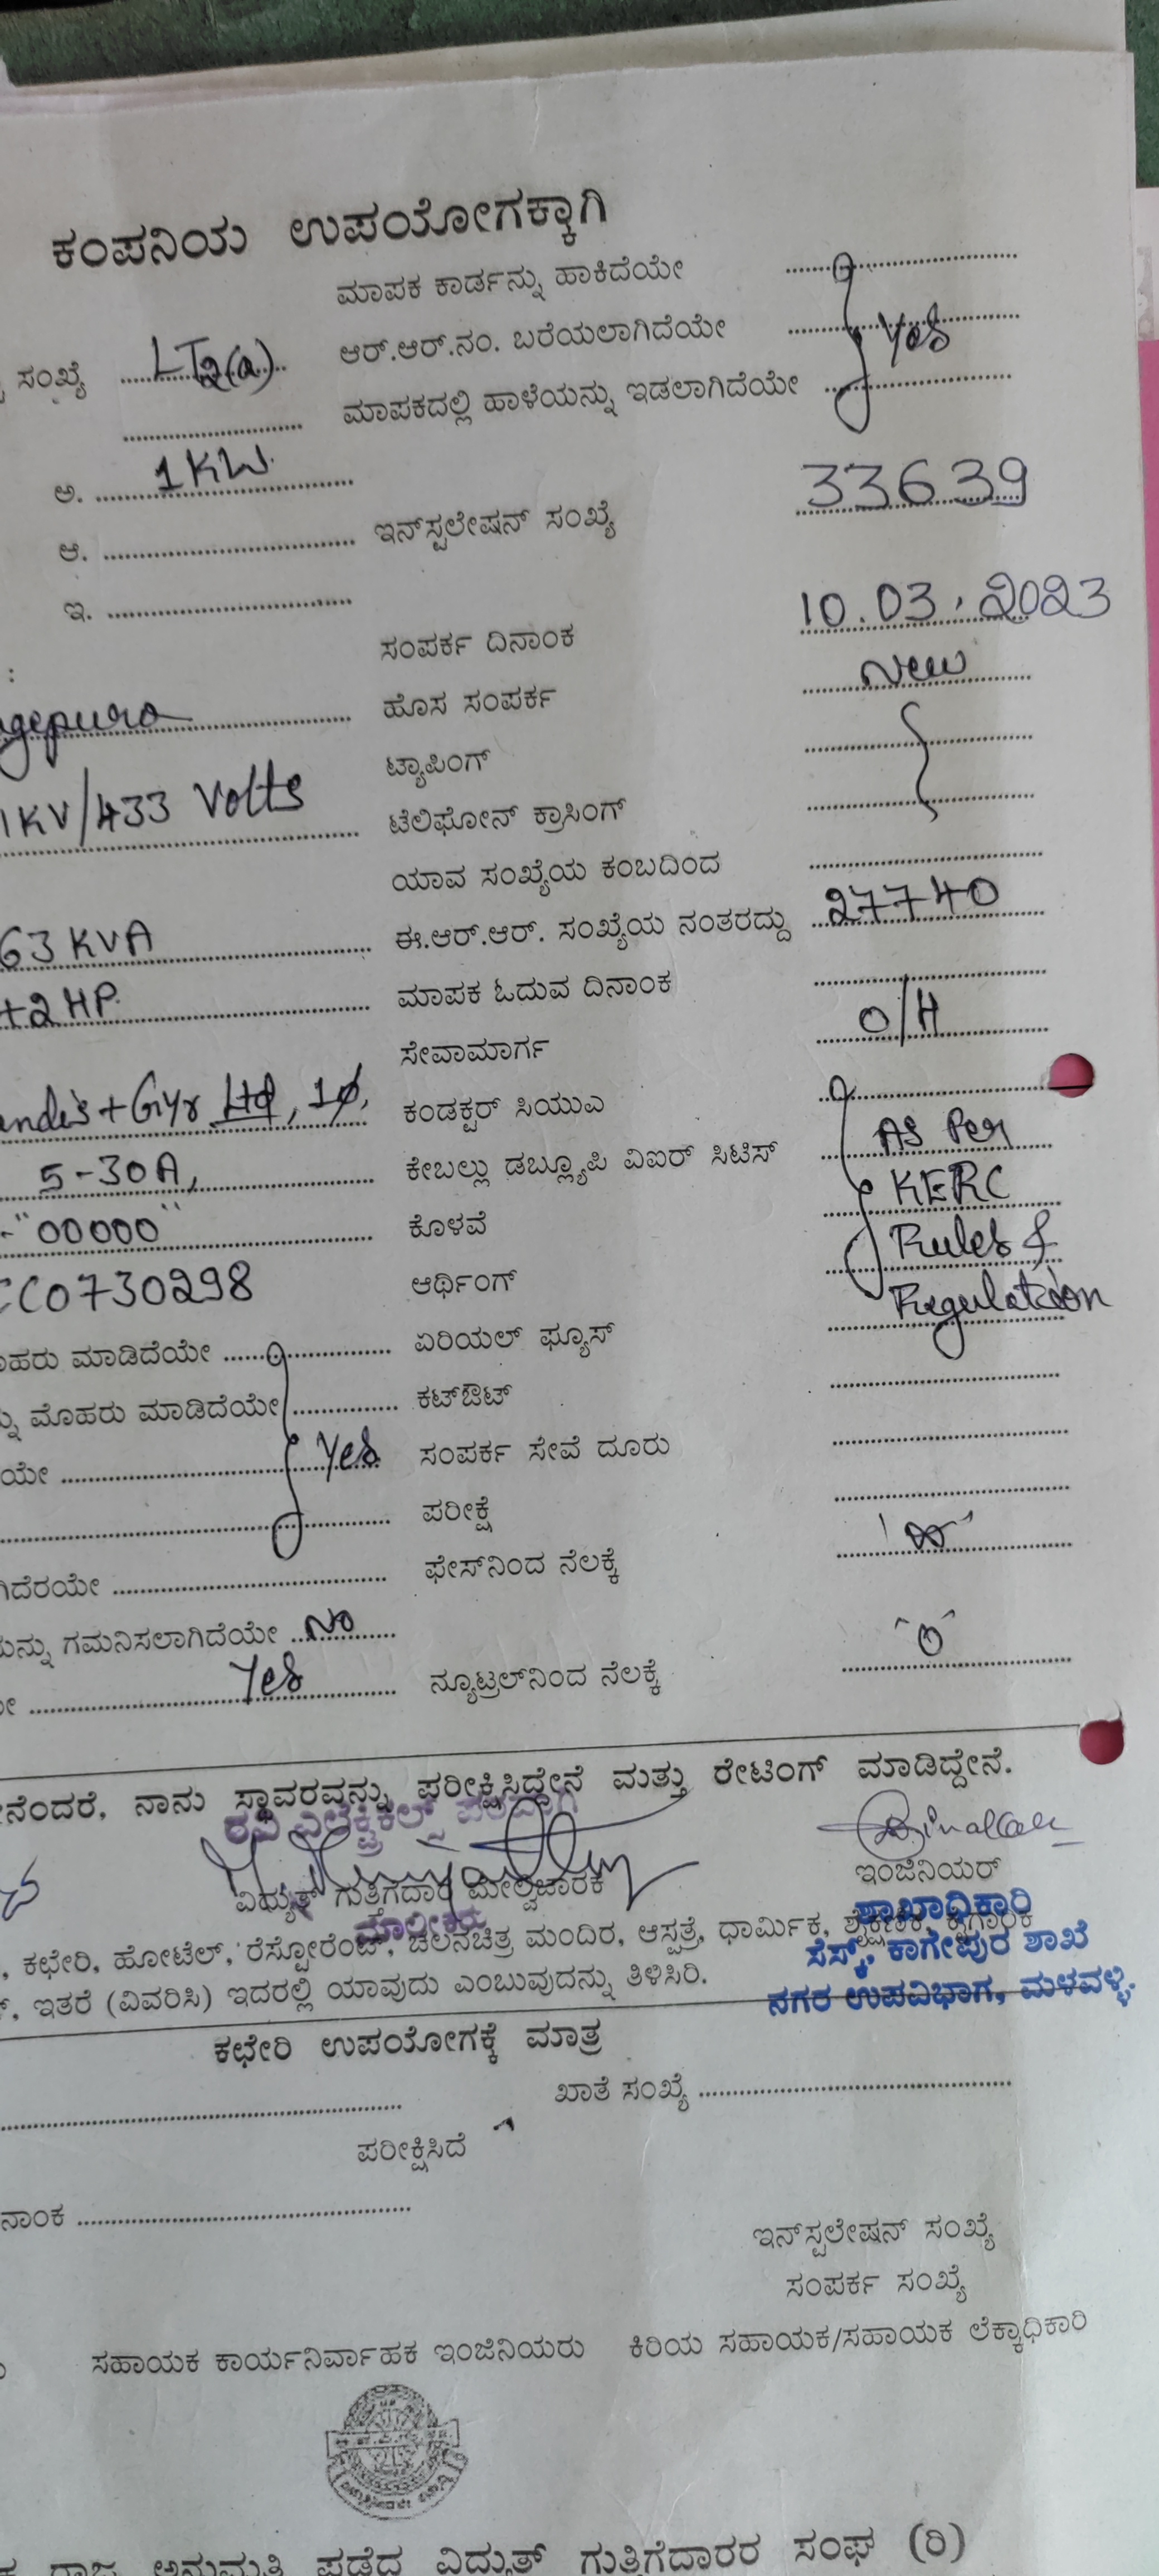 ಕಂಪನಿಯ ಉಪಯೋಗಕ್ಕಾಗಿ
ಮಾಪಕ ಕಾರ್ಡನ್ನು ಹಾಕಿದೆಯೇ
ಸಂಖ್ಯೆ LT2(a) ಆರ್.ಆರ್.ನಂ. ಬರೆಯಲಾಗಿದೆಯೇ Yes
ಮಾಪಕದಲ್ಲಿ ಹಾಳೆಯನ್ನು ಇಡಲಾಗಿದೆಯೇ
ಅ. 1KW.
ಆ. ಇನ್‌ಸ್ಟಲೇಷನ್ ಸಂಖ್ಯೆ 33639
ಇ.
ಸಂಪರ್ಕ ದಿನಾಂಕ 10.03.2023
: ಹೊಸ ಸಂಪರ್ಕ New
gepura
ಟ್ಯಾಪಿಂಗ್
1KV/433 Volts ಟೆಲಿಫೋನ್ ಕ್ರಾಸಿಂಗ್
ಯಾವ ಸಂಖ್ಯೆಯ ಕಂಬದಿಂದ
63 KVA ಈ.ಆರ್.ಆರ್. ಸಂಖ್ಯೆಯ ನಂತರದ್ದು 27740
+2 HP. ಮಾಪಕ ಓದುವ ದಿನಾಂಕ
ಸೇವಾಮಾರ್ಗ O/H
andis+Gyr Ltd, 1ø, ಕಂಡಕ್ಟರ್ ಸಿಯುಎ
5-30A, ಕೇಬಲ್ಲು ಡಬ್ಲ್ಯೂಪಿ ವಿಐರ್ ಸಿಟಿಸ್ As Per
-"00000" ಕೊಳವೆ KERC
CC0730298 ಆರ್ಥಿಂಗ್ Rules &
ಹರು ಮಾಡಿದೆಯೇ ಏರಿಯಲ್ ಫ್ಯೂಸ್ Regulation
ಮೊಹರು ಮಾಡಿದೆಯೇ ಕಟ್‌ಔಟ್
ಯೇ Yes ಸಂಪರ್ಕ ಸೇವೆ ದೂರು
ಪರೀಕ್ಷೆ
ಗಿದೆರಯೇ ಫೇಸ್‌ನಿಂದ ನೆಲಕ್ಕೆ
ಯನ್ನು ಗಮನಿಸಲಾಗಿದೆಯೇ No
Yes ನ್ಯೂಟ್ರಲ್‌ನಿಂದ ನೆಲಕ್ಕೆ "0"
ನೆಂದರೆ, ನಾನು ಸ್ಥಾವರವನ್ನು ಪರೀಕ್ಷಿಸಿದ್ದೇನೆ ಮತ್ತು ರೇಟಿಂಗ್ ಮಾಡಿದ್ದೇನೆ.
ರವಿ ಎಲೆಕ್ಟ್ರಿಕಲ್ಸ್ ಪರವಾಗಿ
ವಿದ್ಯುತ್ ಗುತ್ತಿಗೆದಾರ ಮೇಲ್ವಿಚಾರಕ ಇಂಜಿನಿಯರ್
ಮಾಲೀಕರು ಶಾಖಾಧಿಕಾರಿ
, ಕಛೇರಿ, ಹೋಟೆಲ್, ರೆಸ್ಪೋರೆಂಟ್, ಚಲನಚಿತ್ರ ಮಂದಿರ, ಆಸ್ಪತ್ರೆ, ಧಾರ್ಮಿಕ, ಶೈಕ್ಷಣಿಕ, ಕೈಗಾರಿಕೆ
ಸೆಸ್ಕ್, ಕಾಗೇಪುರ ಶಾಖೆ
, ಇತರೆ (ವಿವರಿಸಿ) ಇದರಲ್ಲಿ ಯಾವುದು ಎಂಬುವುದನ್ನು ತಿಳಿಸಿರಿ.
ನಗರ ಉಪವಿಭಾಗ, ಮಳವಳ್ಳಿ.
ಕಛೇರಿ ಉಪಯೋಗಕ್ಕೆ ಮಾತ್ರ
ಖಾತೆ ಸಂಖ್ಯೆ
ಪರೀಕ್ಷಿಸಿದೆ
ನಾಂಕ
ಇನ್‌ಸ್ಟಲೇಷನ್ ಸಂಖ್ಯೆ
ಸಂಪರ್ಕ ಸಂಖ್ಯೆ
ಸಹಾಯಕ ಕಾರ್ಯನಿರ್ವಾಹಕ ಇಂಜಿನಿಯರು ಕಿರಿಯ ಸಹಾಯಕ/ಸಹಾಯಕ ಲೆಕ್ಕಾಧಿಕಾರಿ
ರಾಜ್ಯ ಅನುಮತಿ ಪಡೆದ ವಿದ್ಯುತ್ ಗುತ್ತಿಗೆದಾರರ ಸಂಘ (ರಿ)